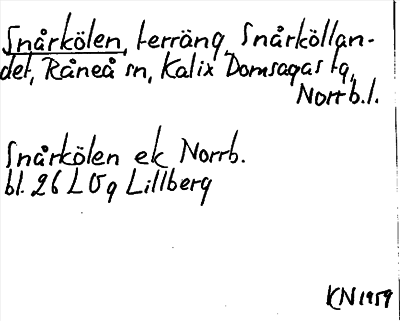 Snårkölen, terräng, Snårköllan-
det, Råneå sn, Kalix Domsagas tg,
Norrb.l.
Snårkölen ek Norrb.
bl. 26 L Ög Lillberg
KN 1959